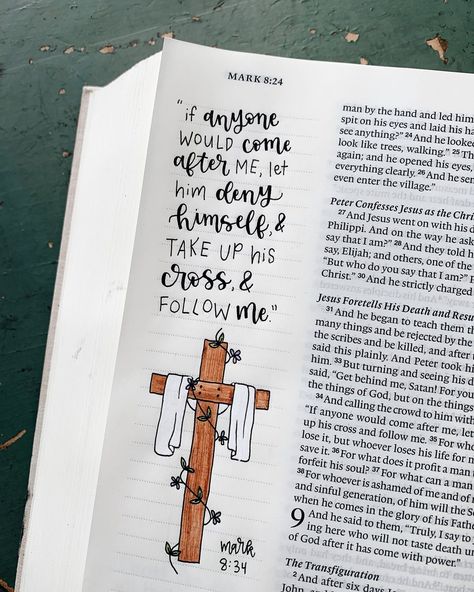 MARK 8:24
"if anyone
WOULD come
after ME, let
him deny
himself, &
TAKE UP his
cross, &
FOLLOW me."
mark
8:34
man by the hand and led him
spit on his eyes and laid his ha
see anything?" 24 And he looked
look like trees, walking." 25 Th
again; and he opened his eyes,
everything clearly. 26 And he sen
even enter the village."
Peter Confesses Jesus as the Chri
27 And Jesus went on with his d
Philippi. And on the way he ask
say that I am?" 28 And they told h
say, Elijah; and others, one of the
"But who do you say that I am?" P
Christ." 30 And he strictly charged
Jesus Foretells His Death and Resu
31 And he began to teach them th
many things and be rejected by the
the scribes and be killed, and after
said this plainly. And Peter took hi
him. 33 But turning and seeing his d
said, "Get behind me, Satan! For you
the things of God, but on the things
34 And calling the crowd to him with
"If anyone would come after me, let
up his cross and follow me. 35 For who
lose it, but whoever loses his life for m
save it. 36 For what does it profit a man
forfeit his soul? 37 For what can a man
38 For whoever is ashamed of me and of m
and sinful generation, of him will the So
when he comes in the glory of his Fath
9 And he said to them, "Truly, I say to
ing here who will not taste death un
of God after it has come with power."
The Transfiguration
2 And after six days Jesus
John, and